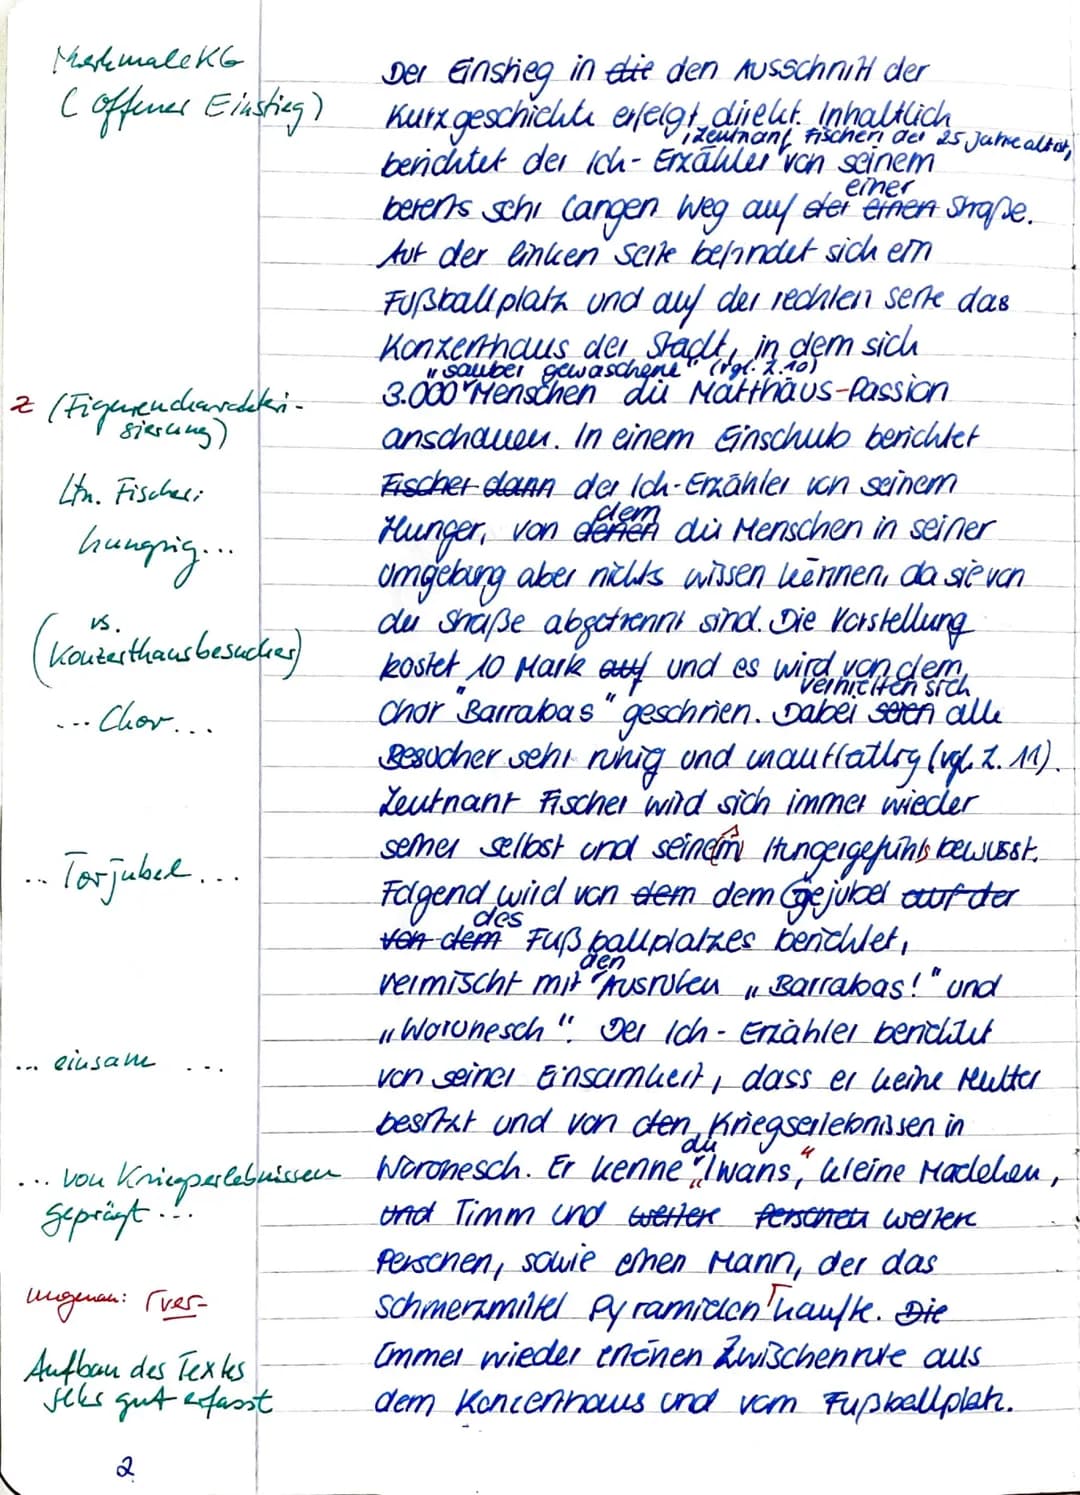 Merkmale KG
(offener Einstieg)
Der Einstieg in die den Ausschnitt der
Kurzgeschichte erfolgt direkt. Inhaltlich
, Leutnant Fischer, der 25 Jahre alt ist,
berichtet der Ich-Erzähler von seinem
einer
bereits sehr langen Weg auf der einen Straße.
Auf der linken Seite befindet sich ein
Fußballplatz und auf der rechten Seite das
Konzerthaus der Stadt, in dem sich
"sauber gewaschene" (vgl. Z. 10)
3.000 Menschen die Matthäus-Passion
z (Figurencharakteri-
sierung)
anschauen. In einem Einschub berichtet
Ltn. Fischer:
Fischer dann der Ich-Erzähler von seinem
dem
hungrig...
Hunger, von denen die Menschen in seiner
Umgebung aber nichts wissen können, da sie von
vs.
der Straße abgetrennt sind. Die Vorstellung
(Konzerthausbesucher)
kostet 10 Mark auf und es wird von dem
verhielten sich
... Chor...
Chor "Barrabas" geschrien. Dabei seien alle
Besucher sehr ruhig und unauffällig (vgl. Z. 11).
Leutnant Fischer wird sich immer wieder
seiner selbst und seinem Hungergefühls bewusst.
... Torjubel...
Folgend wird von dem dem Gejubel auf der
des
von dem Fußballplatzes berichtet,
den
vermischt mit Ausrufen „Barrabas!" und
„Woronesch". Der Ich-Erzähler berichtet
... einsam ...
von seiner Einsamkeit, dass er keine Mutter
besitzt und von den Kriegserlebnissen in
die
... von Kriegserlebnissen
Woronesch. Er kenne „Iwans," kleine Mädchen,
geprägt...
und Timm und weitere Personen weitere
Personen, sowie einen Mann, der das
ungenau: ⌈ver-
Schmerzmittel Pyramidon ⌈kaufte. Die
Aufbau des Textes
Immer wieder ertönen Zwischenrufe aus
sehr gut erfasst
dem Koncerthaus und vom Fußballplatz.
2